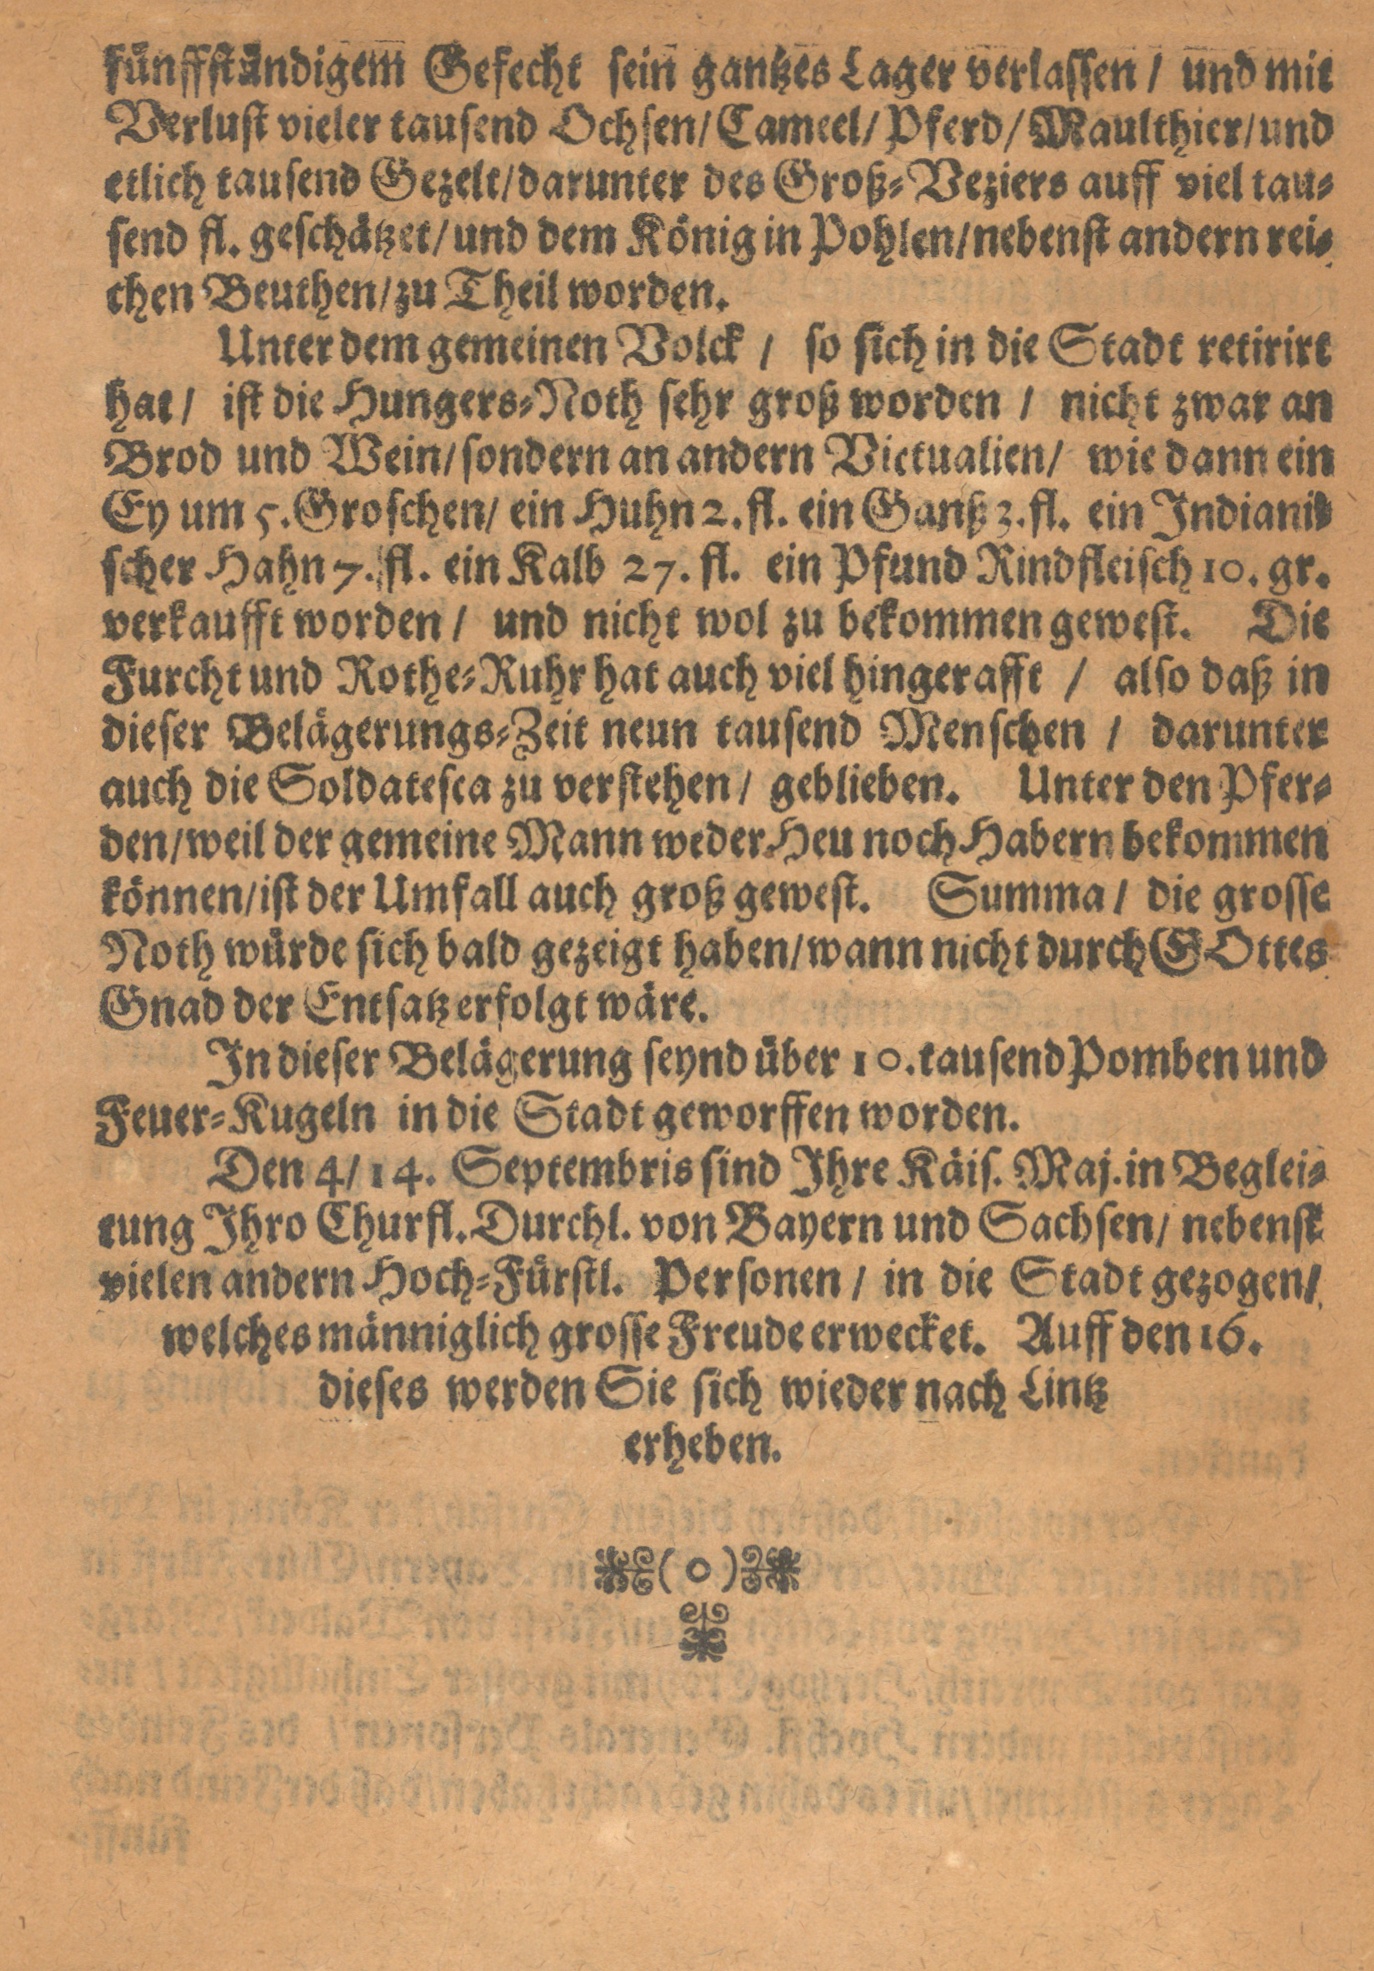 fünffständigem Gefecht sein gantzes Lager verlassen / und mit
Verlust vieler tausend Ochsen/ Cameel/ Pferd/ Maulthier/ und
etlich tausend Gezelt/ darunter des Groß-Veziers auff viel tau-
send fl. geschätzet/ und dem König in Pohlen/ nebenst andern rei-
chen Beuthen/ zu Theil worden.
Unter dem gemeinen Volck / so sich in die Stadt retirirt
hat/ ist die Hungers-Noth sehr groß worden / nicht zwar an
Brod und Wein/ sondern an andern Victualien/ wie dann ein
Ey um 5. Groschen/ ein Huhn 2. fl. ein Ganß 3. fl. ein Indiani-
scher Hahn 7. fl. ein Kalb 27. fl. ein Pfund Rindfleisch 10. gr.
verkaufft worden / und nicht wol zu bekommen gewest. Die
Furcht und Rothe-Ruhr hat auch viel hingerafft / also daß in
dieser Belägerungs-Zeit neun tausend Menschen / darunter
auch die Soldatesca zu verstehen / geblieben. Unter den Pfer-
den/ weil der gemeine Mann weder Heu noch Habern bekommen
können/ ist der Umfall auch groß gewest. Summa / die grosse
Noth würde sich bald gezeigt haben/ wann nicht durch GOttes
Gnad der Entsatz erfolgt wäre.
In dieser Belägerung seynd über 10. tausend Pomben und
Feuer-Kugeln in die Stadt geworffen worden.
Den 4/14. Septembris sind Ihre Käis. Maj. in Beglei-
tung Ihro Churfl. Durchl. von Bayern und Sachsen/ nebenst
vielen andern Hoch-Fürstl. Personen / in die Stadt gezogen/
welches männiglich grosse Freude erwecket. Auff den 16.
dieses werden Sie sich wieder nach Lintz
erheben.
( o )